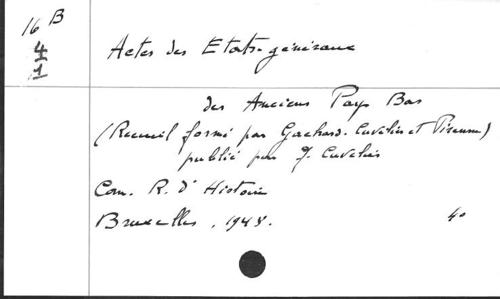 16 B
4
1
Actes des Etats-généraux
des Anciens Pays Bas
(Recueil formé par Gachard. Cuvelier et Pirenne)
publié par J. Cuvelier
Com. R. d'Histoire
Bruxelles, 1948. 4o